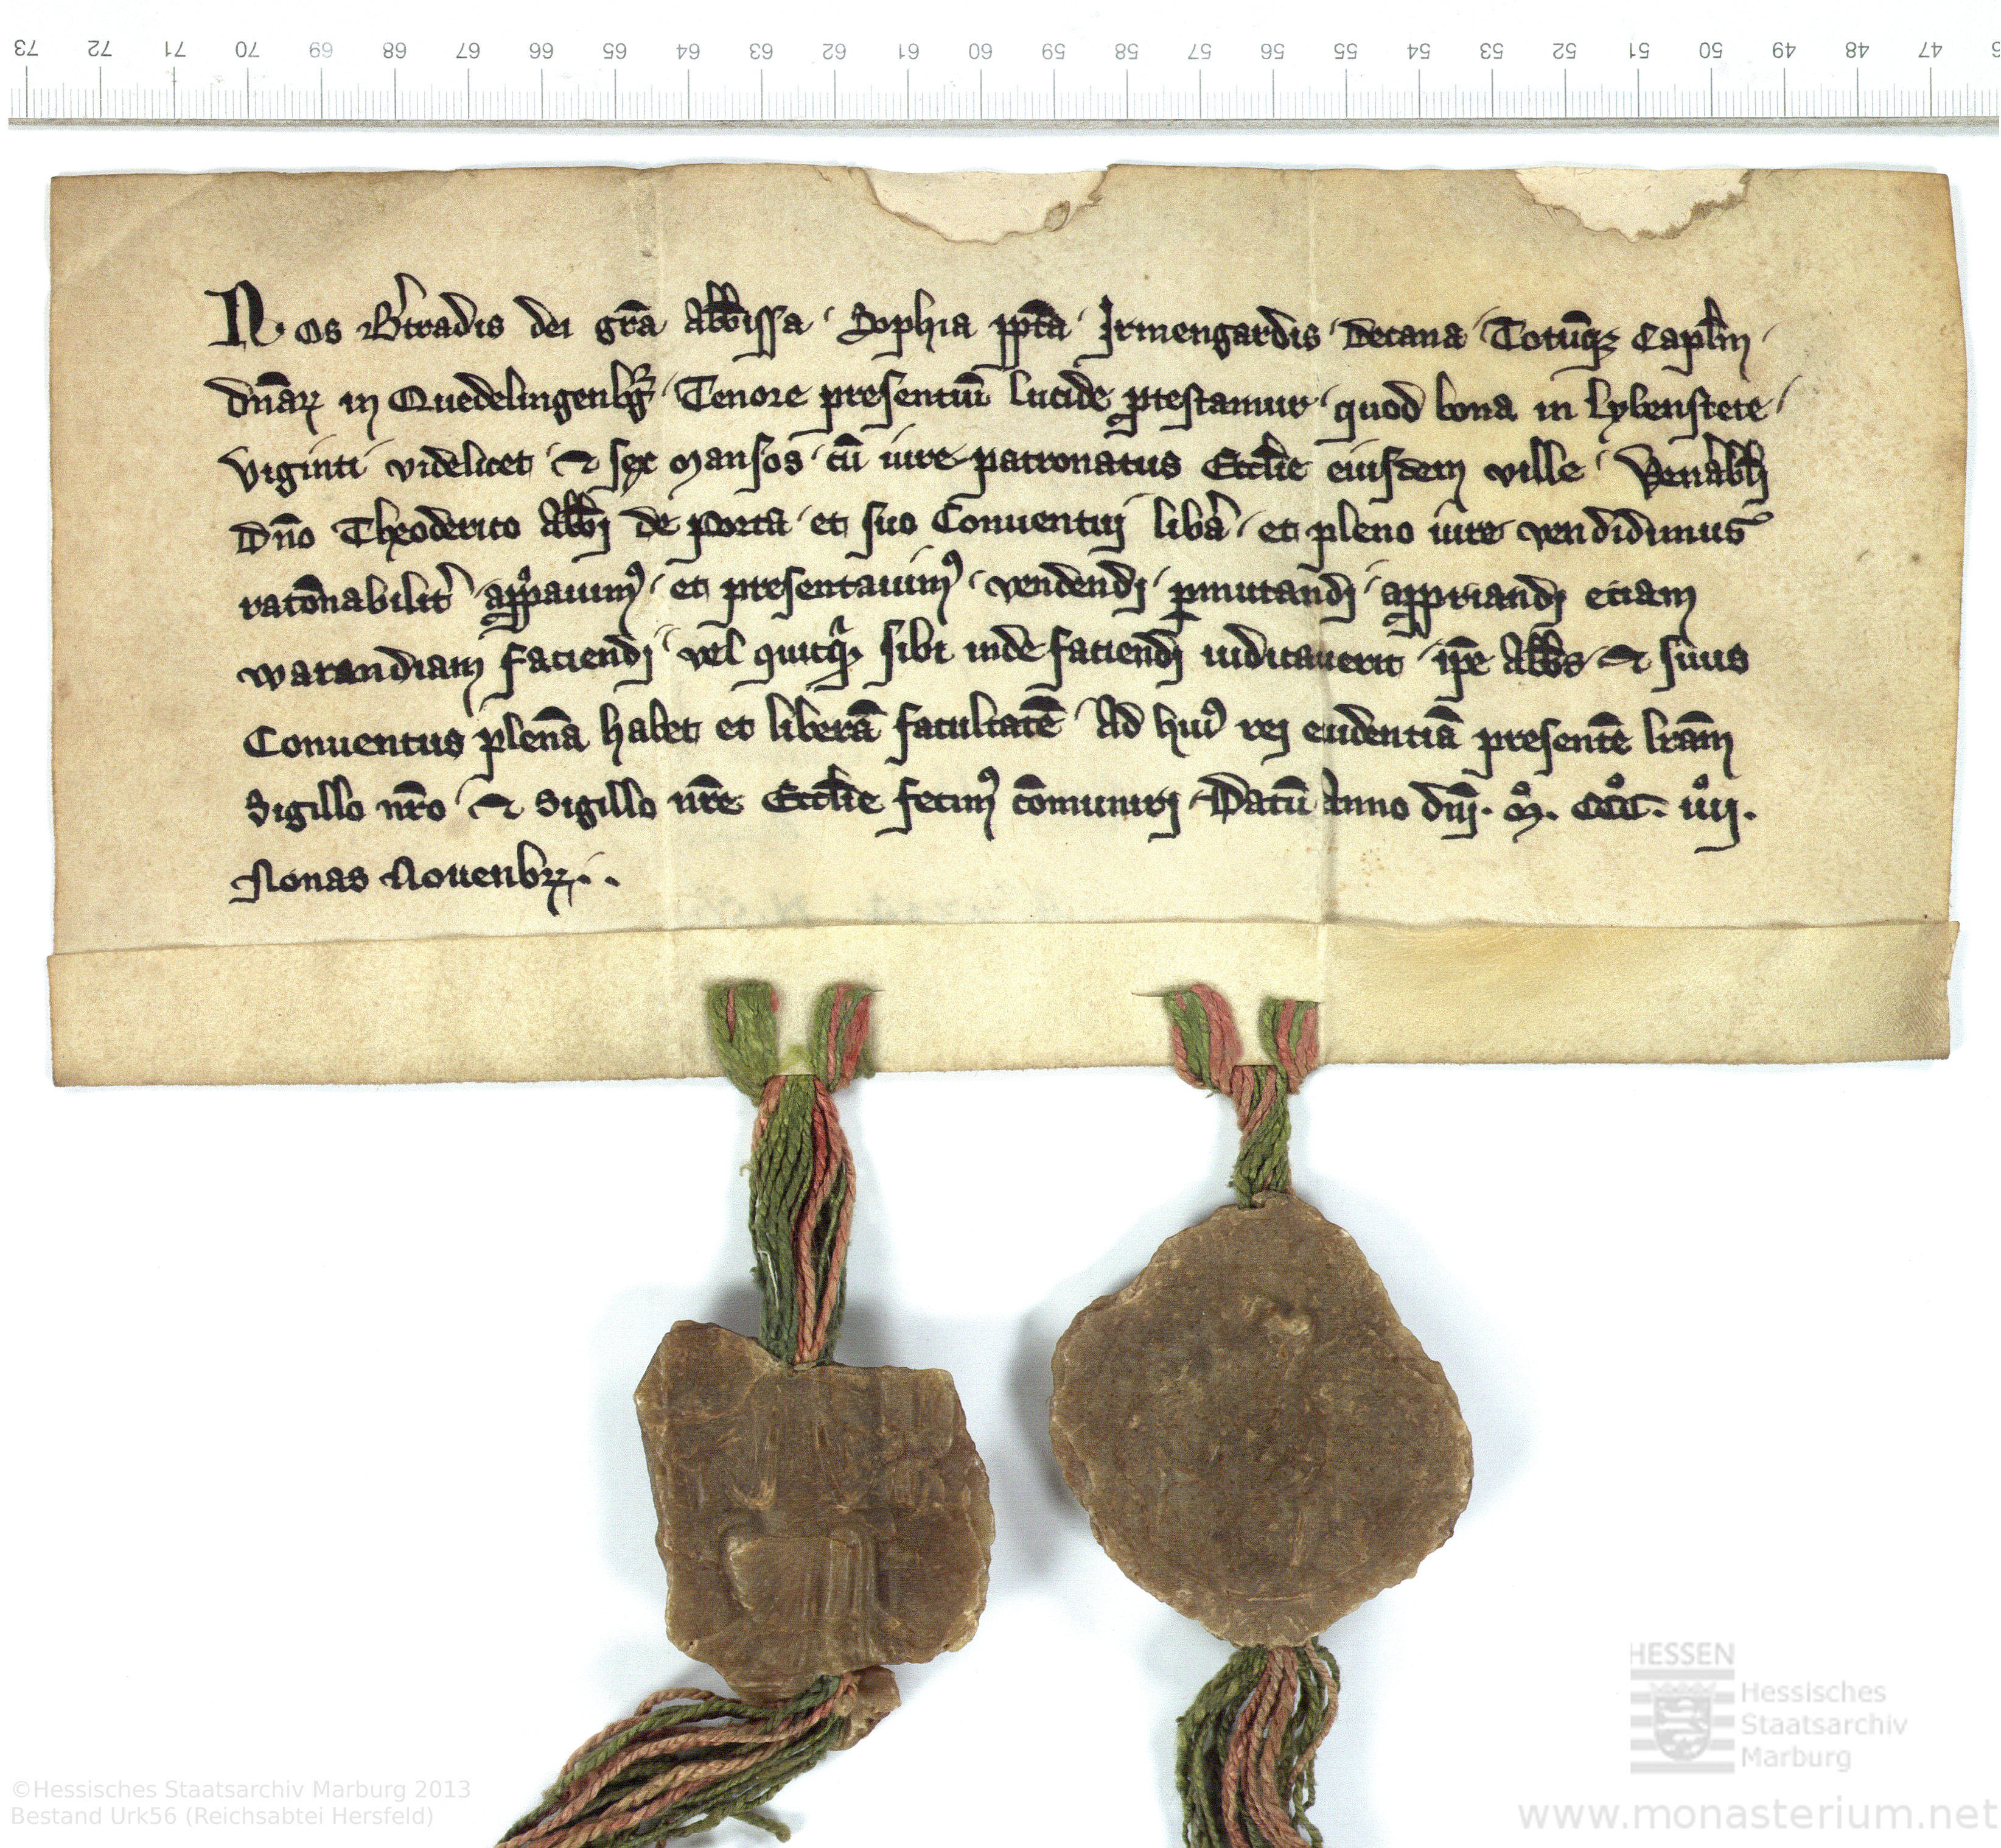 73 72 71 70 69 68 67 66 65 64 63 62 61 60 59 58 57 56 55 54 53 52 51 50 49 48 47
Nos Bͬtradis dei gr̄a Abb̄issa · Sophia pp̄ta · Irmengardis · Decana · Totūqꝫ Capl̄m ·
dn̄aꝝ in Quedelingenbḡ · Tenore presentiū lucide ꝓtestamur · quod bona in Lybenstete ·
viginti videlicet · ⁊ sex mansos · cū iure patronatus Eccl̄ie eiusdem ville · Ven̄abl̄i
Dn̄o Theoderico Abb̄i de Porta · et suo Conuentui lib̄a · et pleno iure vendidimus
rac̄onabilit̉ · apꝓauimꝰ · et presentauimꝰ · vendendi · ꝑmutandi · apꝓriandi etiam
warandiam faciendi · vel quicqͣꝫ sibi inde faciendi iudicauerit · ip̄e Abb̄s · ⁊ suus
Conuentus plenā habet et liberā facultatē · Ad huiꝰ rei euidentiā presentē lr̄am
Sigillo nr̄o · ⁊ Sigillo nr̄e Eccl̄ie fecimꝰ cōmuniri · Datū Anno dn̄i · mͦ · CCCͦ · iiͦii ·
Nonas Nouenbꝝ · .
HESSEN
Hessisches
Staatsarchiv
Marburg
©Hessisches Staatsarchiv Marburg 2013
Bestand Urk56 (Reichsabtei Hersfeld)
www.monasterium.net